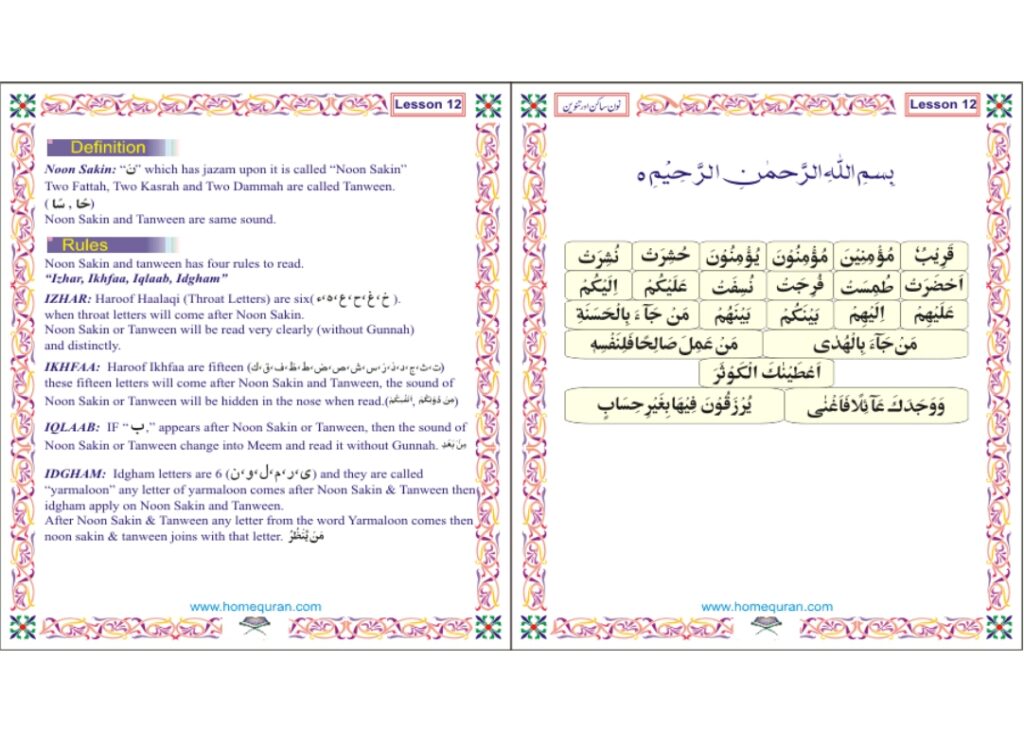 Lesson 12
Definition
Noon Sakin: “نْ” which has jazam upon it is called “Noon Sakin”
Two Fattah, Two Kasrah and Two Dammah are called Tanween.
Noon Sakin and Tanween are same sound.
Rules
Noon Sakin and tanween has four rules to read.
“Izhar, Ikhfaa, Iqlaab, Idgham”
IZHAR: Haroof Haalaqi (Throat Letters) are six( ء،ہ،ع،ح،غ،خ ).
when throat letters will come after Noon Sakin.
Noon Sakin or Tanween will be read very clearly (without Gunnah)
and distinctly.
IKHFAA: Haroof Ikhfaa are fifteen (ت،ث،ج،د،ذ،ز،س،ش،ص،ض،ط،ظ،ف،ق،ك)
these fifteen letters will come after Noon Sakin and Tanween, the sound of
Noon Sakin or Tanween will be hidden in the nose when read.
IQLAAB: IF “ب,” appears after Noon Sakin or Tanween, then the sound of
Noon Sakin or Tanween change into Meem and read it without Gunnah. مِنْۢ بَعْدِ
IDGHAM: Idgham letters are 6 (ی،ر،م،ل،و،ن) and they are called
“yarmaloon” any letter of yarmaloon comes after Noon Sakin & Tanween then
idgham apply on Noon Sakin and Tanween.
After Noon Sakin & Tanween any letter from the word Yarmaloon comes then
noon sakin & tanween joins with that letter. مَنْ يَّنْظُرُ
www.homequran.com
Lesson 12
نون ساکن اور تنوین
بِسْمِ اللهِ الرَّحْمٰنِ الرَّحِيْمِ ٥
قَرِيْبٌ مُؤْمِنِيْنَ مُؤْمِنُوْنَ يُؤْمِنُوْنَ حُشِرَتْ نُشِرَتْ
اَحْضَرَتْ طُمِسَتْ فُرِجَتْ نُسِفَتْ عَلَيْكُمْ اِلَيْكُمْ
عَلَيْهِمْ اِلَيْهِمْ بَيْنَكُمْ بَيْنَهُمْ مَنْ جَآءَ بِالْحَسَنَةِ
مَنْ جَآءَ بِالْهُدٰى مَنْ عَمِلَ صَالِحًا فَلِنَفْسِهٖ
اَعْطَيْنٰكَ الْكَوْثَرَ
وَوَجَدَكَ عَآئِلًا فَاَغْنٰى يُرْزَقُوْنَ فِيْهَا بِغَيْرِ حِسَابٍ
www.homequran.com